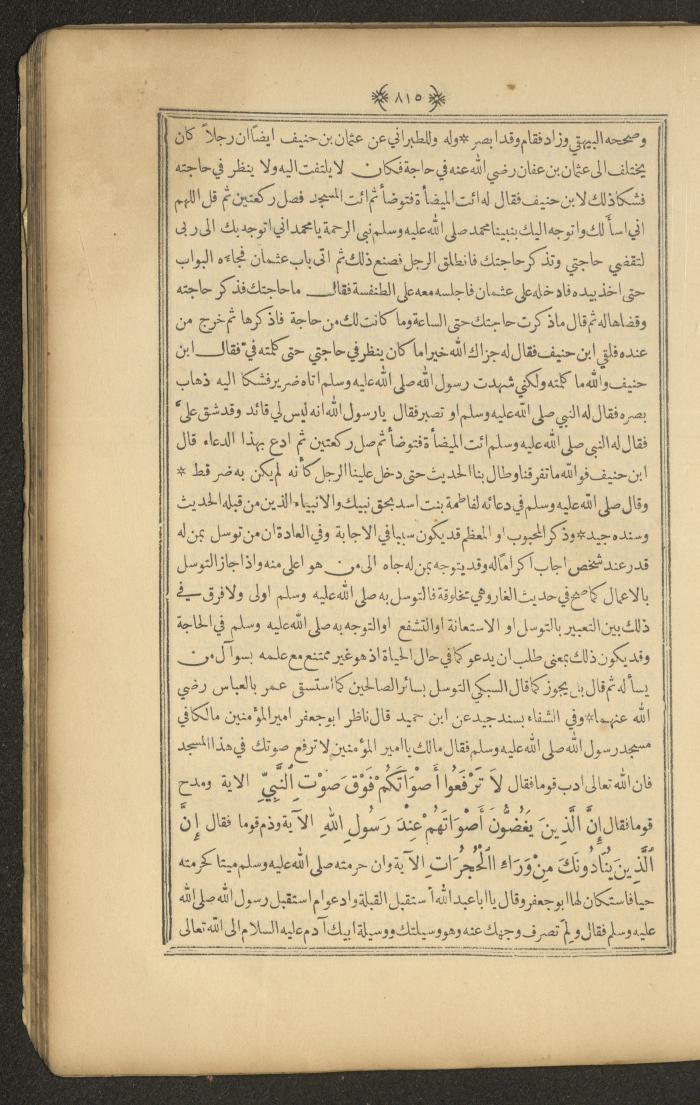 ٨١٥
وصححه البيهقي وزاد فقام وقد ابصر * وله وللطبراني عن عثمان بن حنيف ايضاً ان رجلاً كان
يختلف الى عثمان بن عفان رضي الله عنه في حاجة فكان لا يلتفت اليه ولا ينظر في حاجته
فشكا ذلك لابن حنيف فقال له ائت الميضأة فتوضأ ثم ائت المسجد فصل ركعتين ثم قل اللهم
اني اسألك واتوجه اليك بنبينا محمد صلى الله عليه وسلم نبي الرحمة يا محمد اني اتوجه بك الى ربي
لتقضي حاجتي وتذكر حاجتك فانطلق الرجل فصنع ذلك ثم اتى باب عثمان فجاءه البواب
حتى اخذ بيده فادخله على عثمان فاجلسه معه على الطنفسة فقال ما حاجتك فذكر حاجته
وقضاها له ثم قال ما ذكرت حاجتك حتى الساعة وما كانت لك من حاجة فاذكرها ثم خرج من
عنده فلقي ابن حنيف فقال له جزاك الله خيرا ما كان ينظر في حاجتي حتى كلمته فيّ فقال ابن
حنيف والله ما كلمته ولكني شهدت رسول الله صلى الله عليه وسلم اتاه ضرير فشكا اليه ذهاب
بصره فقال له النبي صلى الله عليه وسلم او تصبر فقال يا رسول الله انه ليس لي قائد وقد شق عليّ
فقال له النبي صلى الله عليه وسلم ائت الميضأة فتوضأ ثم صل ركعتين ثم ادع بهذا الدعاء قال
ابن حنيف فوالله ما تفرقنا وطال بنا الحديث حتى دخل علينا الرجل كأنه لم يكن به ضر قط *
وقال صلى الله عليه وسلم في دعائه لفاطمة بنت اسد بحق نبيك والانبياء الذين من قبله الحديث
وسنده جيد * وذكر المحبوب او المعظم قد يكون سببا في الاجابة وفي العادة ان من توسل بمن له
قدر عند شخص اجاب اكراماً له وقد يتوجه بمن له جاه الى من هو اعلى منه واذا جاز التوسل
بالاعمال كما صح في حديث الغار وهي مخلوقة فالتوسل به صلى الله عليه وسلم اولى ولا فرق في
ذلك بين التعبير بالتوسل او الاستعانة او التشفع او التوجه به صلى الله عليه وسلم في الحاجة
وقد يكون ذلك بمعنى طلب ان يدعو كما في حال الحياة اذ هو غير ممتنع مع علمه بسوآل من
يسأله ثم قال بل يجوز كما قال السبكي التوسل بسائر الصالحين كما استسقى عمر بالعباس رضي
الله عنهما * وفي الشفاء بسند جيد عن ابن حميد قال ناظر ابو جعفر امير المؤمنين مالكا في
مسجد رسول الله صلى الله عليه وسلم فقال مالك يا امير المؤمنين لا ترفع صوتك في هذا المسجد
فان الله تعالى ادب قوما فقال لَا تَرْفَعُوا أَصْوَاتَكُمْ فَوْقَ صَوْتِ النَّبِيِّ الاية ومدح
قوما فقال إِنَّ الَّذِينَ يَغُضُّونَ أَصْوَاتَهُمْ عِنْدَ رَسُولِ اللهِ الآية وذم قوما فقال إِنَّ
الَّذِينَ يُنَادُونَكَ مِنْ وَرَاءِ الْحُجُرَاتِ الآية وان حرمته صلى الله عليه وسلم ميتا كحرمته
حيا فاستكان لها ابو جعفر وقال يا ابا عبد الله أستقبل القبلة وادعو ام استقبل رسول الله صلى الله
عليه وسلم فقال ولِمَ تصرف وجهك عنه وهو وسيلتك ووسيلة ابيك آدم عليه السلام الى الله تعالى